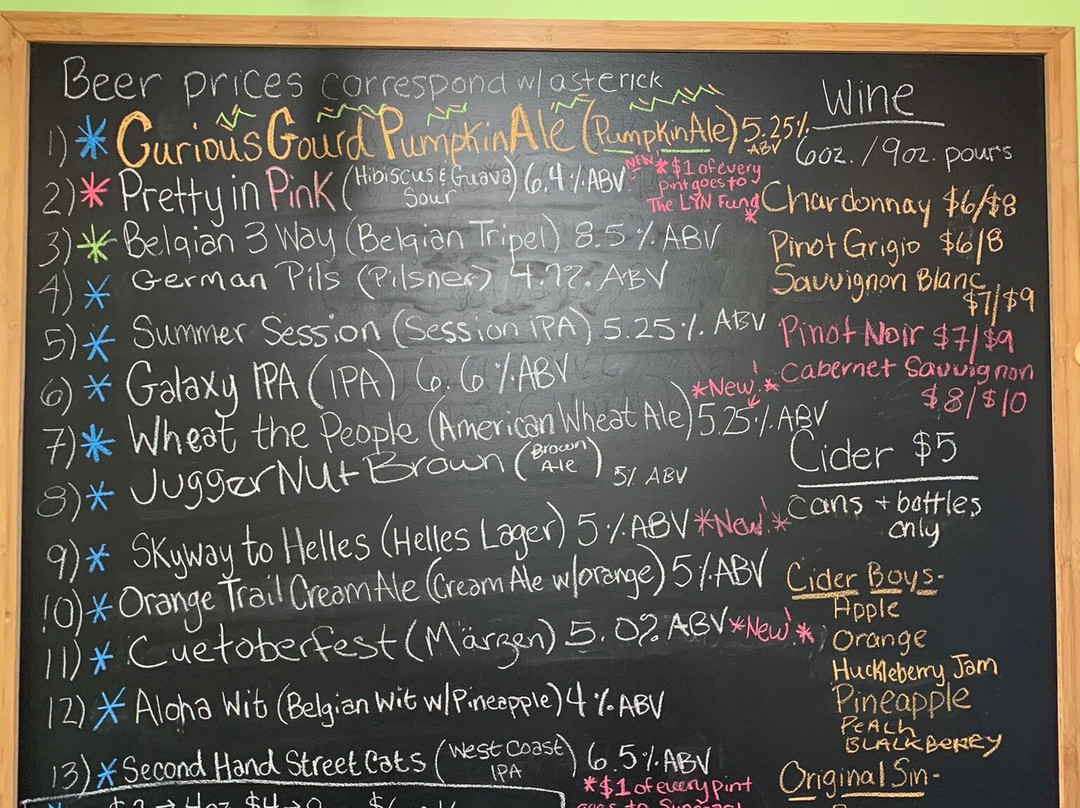 Beer prices correspond w/ asterick
1) * Curious Gourd Pumpkin Ale (Pumpkin Ale) 5.25% ABV
2) * Pretty in Pink (Hibiscus & Guava Sour) 6.4% ABV
NEW *$1 of every
pint goes to
The LYN Fund *
3) * Belgian 3 Way (Belgian Tripel) 8.5% ABV
4) * German Pils (Pilsner) 4.7% ABV
5) * Summer Session (Session IPA) 5.25% ABV
6) * Galaxy IPA (IPA) 6.6% ABV
*New! *
7) * Wheat the People (American Wheat Ale) 5.25% ABV
8) * JuggerNut Brown (Brown Ale) 5% ABV
9) * Skyway to Helles (Helles Lager) 5% ABV *New! *
10) * Orange Trail Cream Ale (Cream Ale w/orange) 5% ABV
11) * Cuetoberfest (Märzen) 5.0% ABV *New! *
12) * Aloha Wit (Belgian Wit w/Pineapple) 4% ABV
13) * Second Hand Street Cats (West Coast IPA) 6.5% ABV
*$1 of every pint
goes to
Wine
6oz. / 9oz. pours
Chardonnay $6/$8
Pinot Grigio $6/8
Sauvignon Blanc
$7/$9
Pinot Noir $7/$9
Cabernet Sauvignon
$8/$10
Cider $5
cans + bottles
only
Cider Boys-
Apple
Orange
Huckleberry Jam
Pineapple
PEACH
BLACKBERRY
Original Sin-